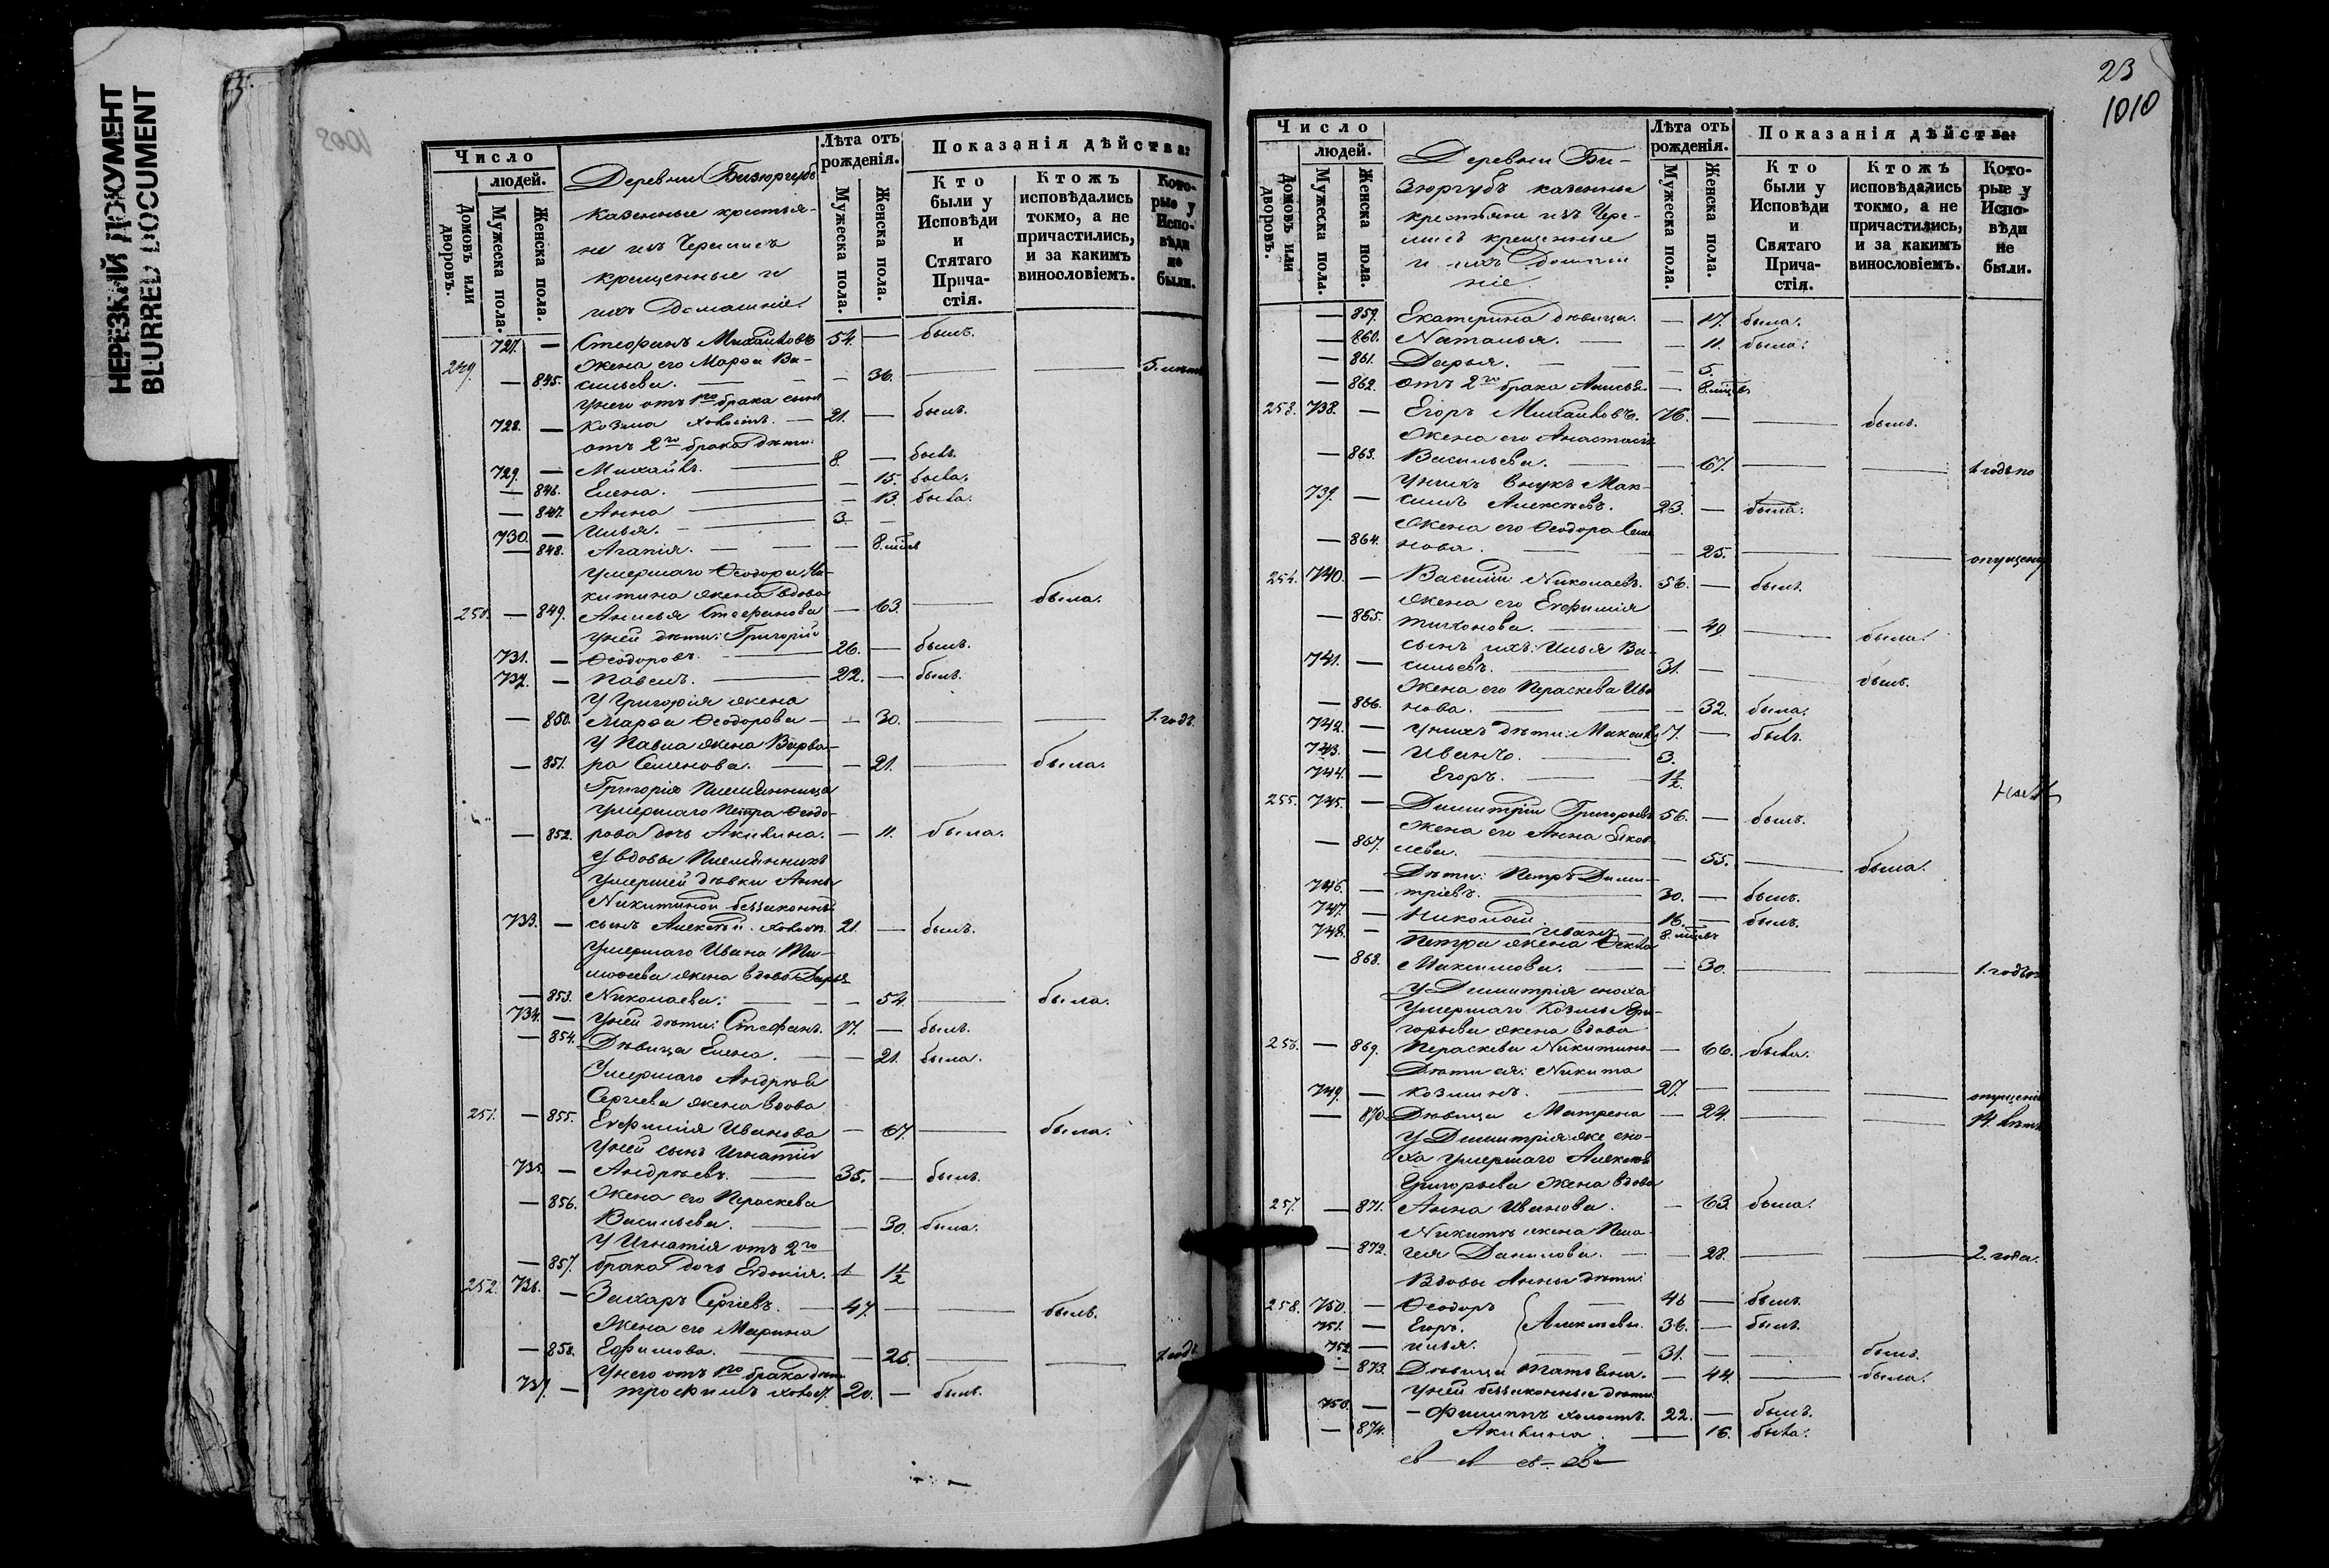 НЕРЕЗКИЙ ДОКУМЕНТ
BLURRED DOCUMENT
Число
людей.
Домовъ или дворовъ.
Мужеска пола.
Женска пола.
Деревни Бизюргубъ
казенные крестья-
не изъ Черемисъ
крещенные и
ихъ Домашніе.
Лѣта отъ рожденія.
Мужеска пола.
Женска пола.
Показанія дѣйства:
Кто были у Исповѣди и Стятаго Прича-стія.
Ктожъ исповѣдались токмо, а не причастились, и за какимъ винословіемъ.
Кото-рые у Испо-вѣди не были.
727. — Стефанъ Михайловъ 54. — былъ.
249. Жена его Марѳа Ва-
— 845. сильева. — — 36. — — 5. лѣтъ
У него отъ 1го брака сынъ
728. — Козма холостъ. — 21. — былъ.
отъ 2го брака дѣти:
729. — Михайлъ. — 8. — былъ.
— 846. Елена. — — 15. была.
— 847. Анна — — 13. была.
730. — Илья. — 3 —
— 848. Агапія. — — — 8. мѣсяц
умершаго Ѳеодора Ни-
китина жена вдова
250. — 849. Анисья Стефанова — 63. — была.
У ней дѣти: Григорій
731. — Ѳеодоровъ. — 26. — былъ.
732. — Павелъ. — 22. — былъ.
У Григорія жена
— 850. Марѳа Ѳеодорова — — 30. — — 1. годъ.
У Павла жена Варва-
— 851. ра Семенова. — — 21. — была.
Григорія племянница
умершаго Петра Ѳеодо-
— 852. рова дочь Акилина. — 11. была.
У вдовы племянникъ
умершей дѣвки Анны
Никитиной беззаконный
733. — сынъ Алексѣй холостъ. 21. — былъ.
Умершаго Ивана Ти-
моѳеева жена вдова Дарья
— 853. Николаева. — — 54. — была.
734. — У ней дѣти: Стефанъ. 17. — былъ.
— 854. Дѣвица Елена. — — 21. была.
Умершаго Андрея
Сергіева жена вдова
251. — 855. Евфимія Иванова — 67. — была.
У ней сынъ Игнатій
735. — Андреевъ. — 35. — былъ.
— 856. Жена его Параскева
Васильева. — — 30. была.
У Игнатія отъ 2го
— 857. брака дочь Евдокія. 1 1½
252. 736. — Захаръ Сергіевъ. — 47. — — былъ.
Жена его Марина
— 858. Ефимова. — — 25. — — 1. годъ
У него отъ 1го брака дѣти
737. — Трофимъ холост. 20. — былъ.
23
1010
Число
людей.
Домовъ или дворовъ.
Мужеска полы.
Женска пола.
Деревни Би-
зюргубъ казенные
крестьяне изъ Чере-
мисъ крещенные
и ихъ Домаш
ніе.
Лѣта отъ рожденія.
Мужеска пола.
Женска пола.
Показанія дѣйства:
Кто были у Исповѣди и Святаго Прича-стія.
Ктожъ исповѣдались токмо, а не причастились, и за какимъ винословіемъ.
Кото-рые у Испо-вѣди не были.
— 859. Екатерина дѣвица. — 17. была.
— 860. Наталья. — — 11. была.
— 861. Дарья. — — 5.
— 862. отъ 2го брака Анисья — 8. мѣсяц.
253. 738. — Егоръ Михайловъ. 76. — — былъ.
Жена его Анастасія
— 863. Васильева. — — 67. — — 1 годъ по
У нихъ внукъ Мак-
739. — симъ Алексѣевъ. 23. — была.
Жена его Ѳеодора Семе
— 864. нова. — — 25. — — опущено
254. 740. — Василій Николаевъ. 56. — былъ.
Жена его Евфимія
— 865. Тихонова. — — 49 — была.
сынъ ихъ: Илья Ва-
741. — сильевъ. — 31. — — былъ.
Жена его Параскева Ива
— 866. нова. — — 32. была.
742. — У нихъ дѣти: Максимъ 7. — былъ.
743. — Иванъ. — 3.
744. — Егоръ. — 1½.
255. 745. — Димитрій Григорьевъ 56. — былъ.
Жена его Анна Яков
— 867. лева. — — 55. — была.
Дѣти: Петръ Дими-
746. — тріевъ. — 30. — былъ.
747. — Николай. — 16. — былъ.
748. — Иванъ — 8. мѣсяцъ
Петра жена Ѳекла
— 868. Максимова. — — 30. — — 1. годъ
У Димитрія сноха
Умершаго Козмы Гри-
горьева жена вдова
256. — 869. Параскева Никитина — 66. была.
Дѣти ея: Никита
749. — Козминъ. — 27. — — опущеніе
— 870 Дѣвица Матрена — 24. — — 14. лѣтъ
У Димитрія же сно-
ха умершаго Алексѣя
Григорьева жена вдова
257. — 871. Анна Иванова. — 63. была.
Никиты жена Пела-
— 872. гея Данилова. — — 28. — — 2. года.
Вдовы Анны дѣти:
258. 750. — Ѳеодоръ — 46 — былъ.
751. — Егоръ. Алексѣевы. 36. — былъ.
752. — Илья. — 31. — — былъ.
— 873. Дѣвица Татьяна. — 44. — была.
У ней беззаконные дѣти
750. — Филиппъ холостъ. 22. — былъ.
— 874. Акилина. — 16. была.